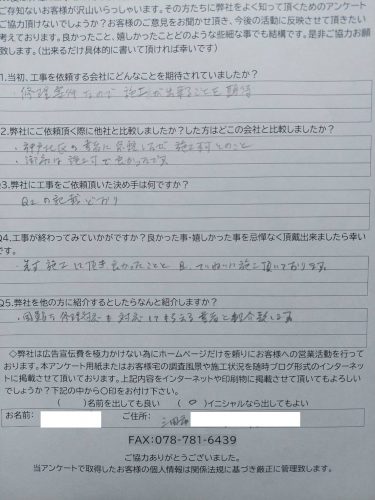 ご存知ないお客様が沢山いらっしゃいます。その方たちに弊社をよく知って頂くためのアンケート
ご協力頂けないでしょうか？お客様のご意見をお聞かせ頂き、今後の活動に反映させて頂きたい
考えております。良かったこと、嬉しかったことどのような些細な事でも結構です。是非ご協力お願
致します。（出来るだけ具体的に書いて頂ければ幸いです）
1.当初、工事を依頼する会社にどんなことを期待されていましたか？
・修理案件なので施工が出来ることを期待
2.弊社にご依頼頂く際に他社と比較しましたか？した方はどこの会社と比較しましたか？
施工可とのこと
・施工可で良かったです
Q3.弊社に工事をご依頼頂いた決め手は何ですか？
Q2の記載どおり
Q4.工事が終わってみていかがですか？良かった事・嬉しかった事を忌憚なく頂戴出来ましたら幸い
です。
施工して頂き良かったこと 且、ていねいに施工頂いております。
Q5.弊社を他の方に紹介するとしたらなんと紹介しますか？
・困難な修理対応も対応して もらえる業者と紹介致します。
◇弊社は広告宣伝費を極力かけない為にホームページだけを頼りにお客様への営業活動を行って
おります。本アンケート用紙またはお客様宅の調査風景や施工状況を随時ブログ形式のインターネッ
トに掲載させて頂いております。上記内容をインターネットや印刷物に掲載させて頂いてもよろしい
でしょうか？下記の中から〇印をお付け下さい。
（ ）名前を出しても良い （ ○ ）イニシャルなら出してもよい
お名前： ご住所： 三田市
FAX:078-781-6439
ご協力ありがとうございました。
当アンケートで取得したお客様の個人情報は関係法規に基づき厳正に管理致します。